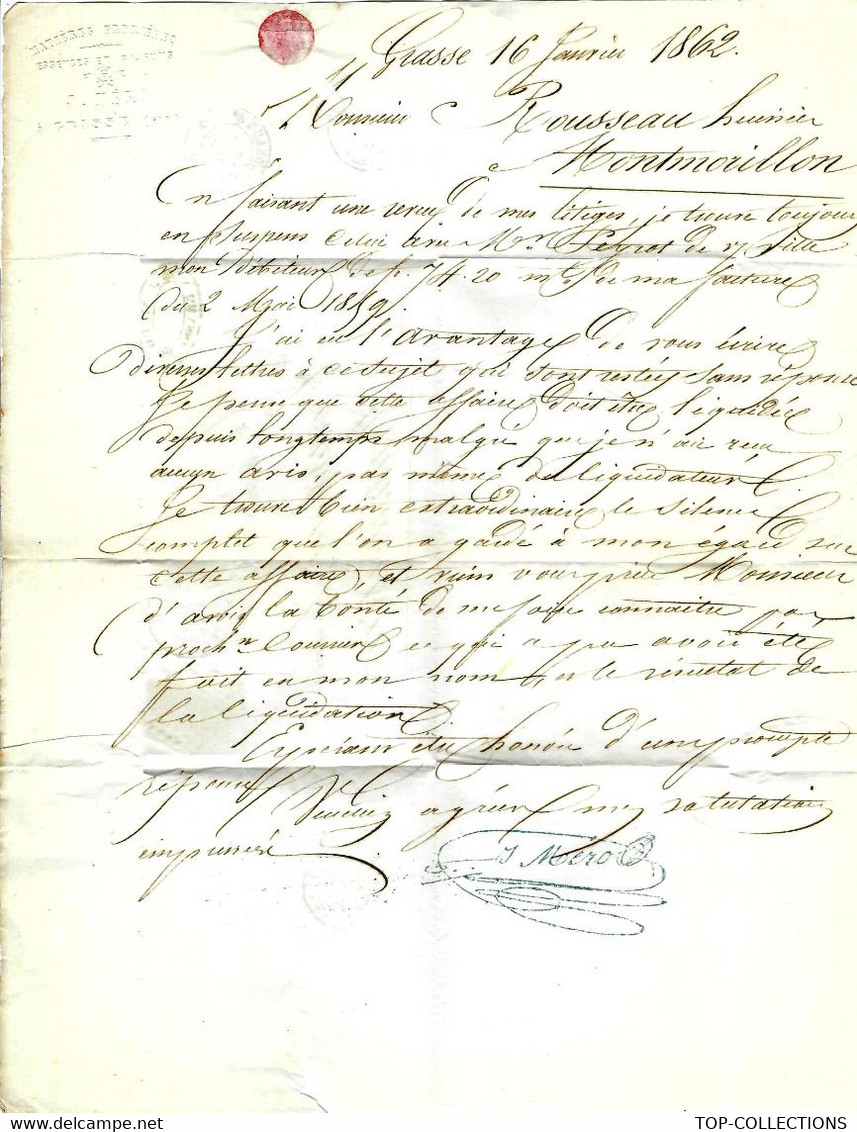 MATIÈRES PREMIÈRES
Grasse 16 Janvier 1862.
Monsieur Rousseau huissier
Montmorillon
En faisant une revue de mes litiges, je trouve toujours
en suspens celui avec Mr. Peyrot de v/ ville
mon Débiteur de f. 74.20 mt. de ma facture
du 2 Mai 1859.
J'ai eu l'avantage de vous écrire
diverses lettres à ce sujet qui sont restées sans réponse
Je pense que cette affaire doit être liquidée
depuis longtemps malgré que je n'aie reçu
aucun avis, pas même du liquidateur.
Je trouve bien extraordinaire le silence
complet que l'on a gardé à mon égard sur
cette affaire, et viens vous prier Monsieur
d'avoir la bonté de me faire connaitre par
prochn Courrier ce qui a pu avoir été
fait en mon nom, et le résultat de
la liquidation.
Espérant être honoré d'une prompte
réponse
Veuillez agréer mes salutations
empressées
J Méro
TOP-COLLECTIONS